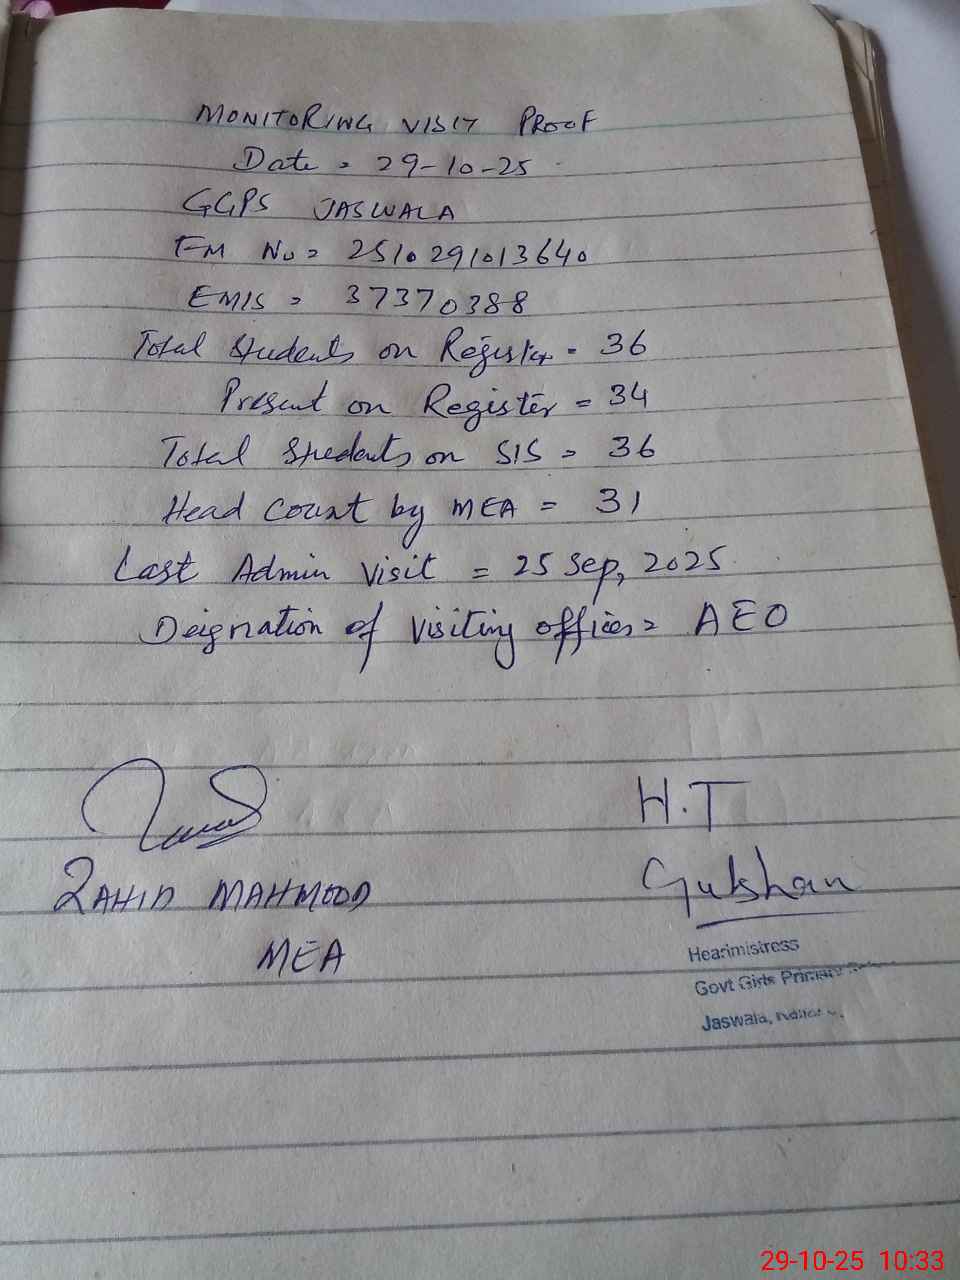 MONITORING VISIT PROOF
Date = 29-10-25
GGPS JASWALA
FM No = 2510291013640
EMIS = 37370388
Total Students on Register = 36
Present on Register = 34
Total Students on SIS = 36
Head Count by MEA = 31
Last Admin Visit = 25 Sep, 2025
Deignation of Visiting officer = AEO
H.T
ZAHID MAHMOOD
Gulshan
MEA
Headmistress
Govt Girls Primary
Jaswala,
29-10-25 10:33